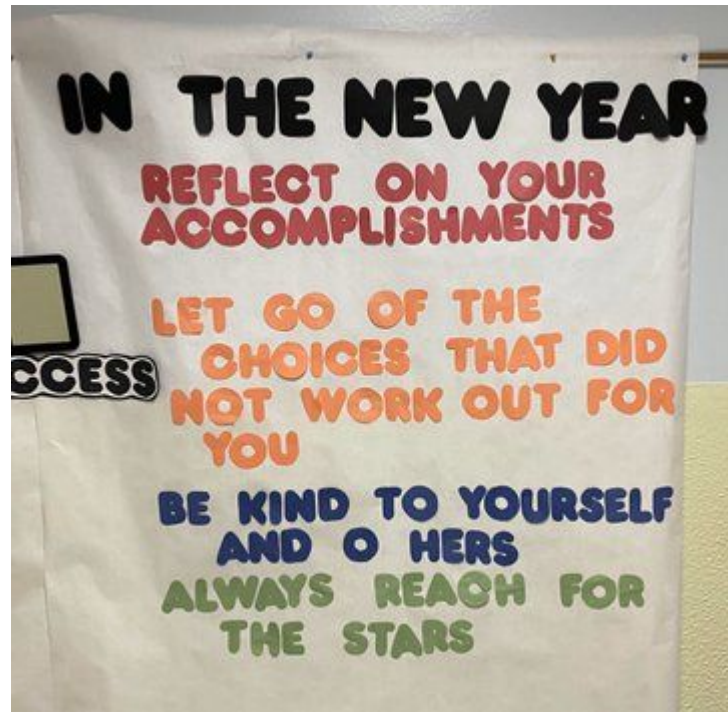 IN THE NEW YEAR
REFLECT ON YOUR
ACCOMPLISHMENTS
LET GO OF THE
CHOICES THAT DID
CCESS
NOT WORK OUT FOR
YOU
BE KIND TO YOURSELF
AND O HERS
ALWAYS REACH FOR
THE STARS